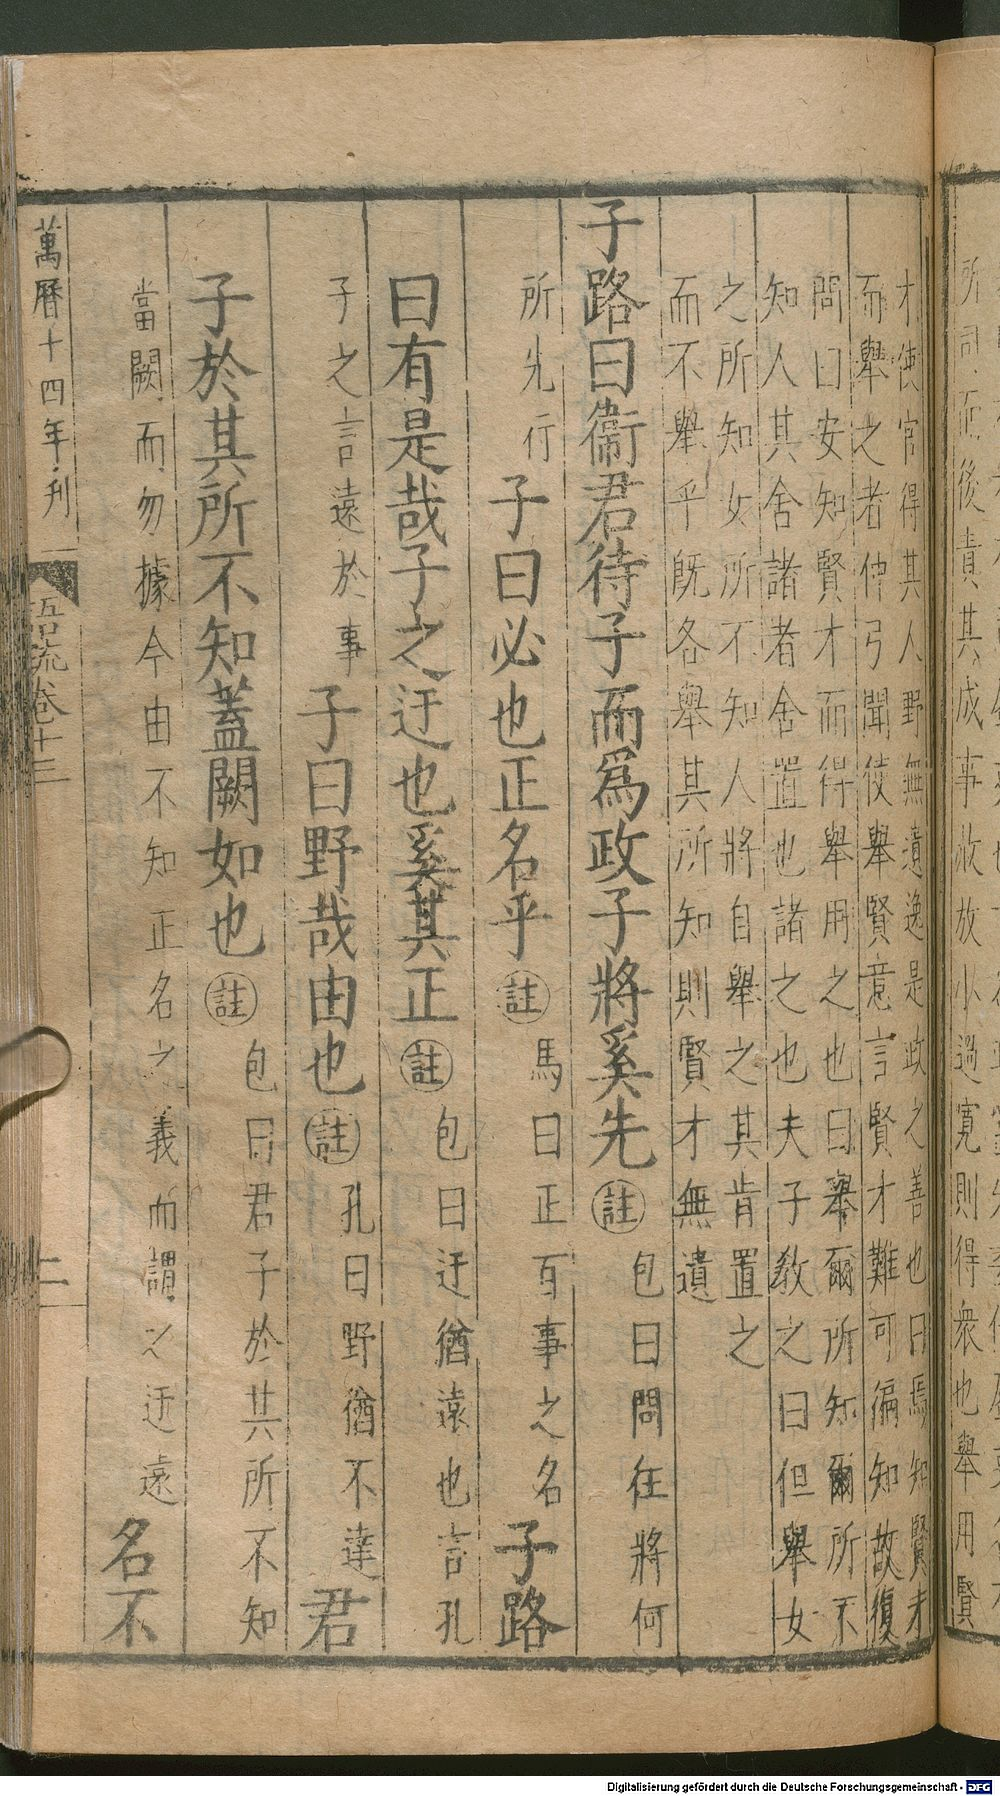 所司而後責其成事故放小過寬則得衆也舉用賢
才使官得其人野無遺逸是政之善也曰焉知賢才
而舉之者仲弓聞使舉賢意言賢才難可徧知故復
問曰安知賢才而得舉用之也曰舉爾所知爾所不
知人其舍諸者舍置也諸之也夫子教之曰但舉女
之所知女所不知人將自舉之其肯置之
而不舉乎既各舉其所知則賢才無遺
子路曰衞君待子而爲政子將奚先註包曰問往將何
所先行子曰必也正名乎註馬曰正百事之名子路
曰有是哉子之迂也奚其正註包曰迂猶遠也言孔
子之言遠於事子曰野哉由也註孔曰野猶不達君
子於其所不知蓋闕如也註包曰君子於其所不知
當闕而勿據今由不知正名之義而謂之迂遠名不
萬曆十四年刋
語流卷十三
二
Digitalisierung gefördert durch die Deutsche Forschungsgemeinschaft - DFG